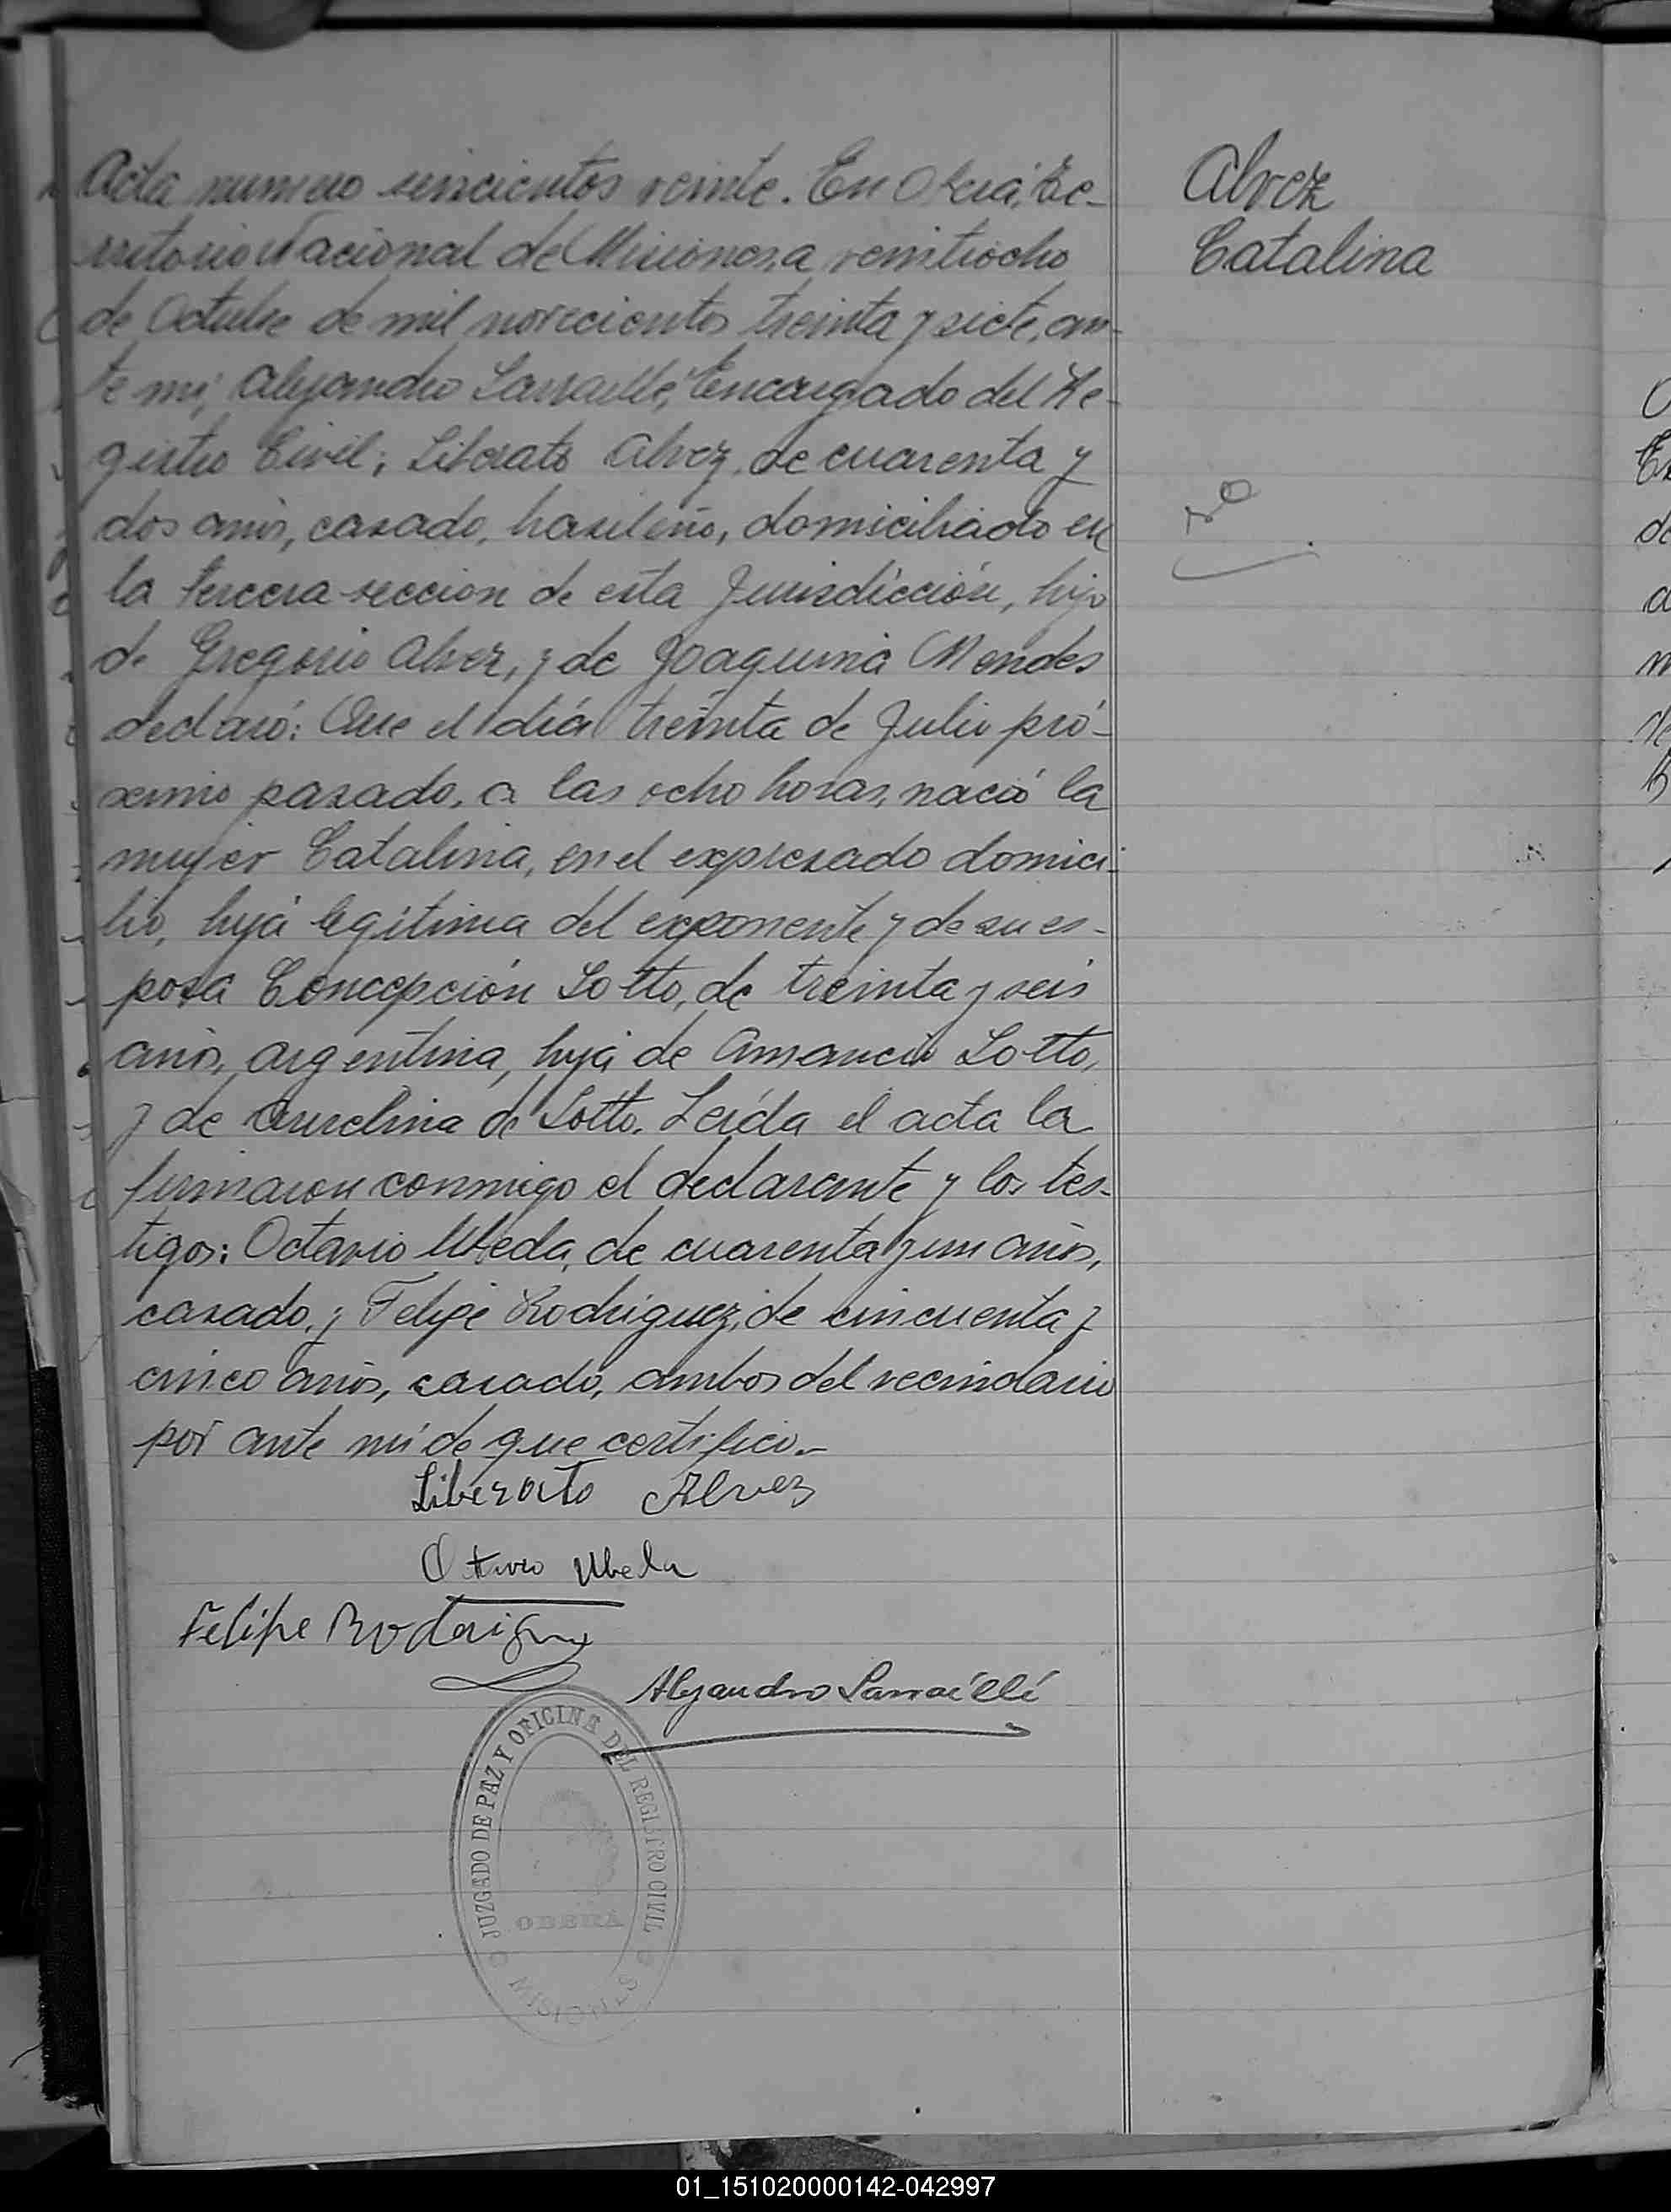 Acta numero seiscientos veinte. En Oberá, Te-
rritorio Nacional de Misiones, a veintiocho
de Octubre de mil novecientos treinta y siete, an-
te mi, Alejandro Sarraillé, Encargado del Re-
gistro Civil; Liberato Alvez, de cuarenta y
dos años, casado, brasileño, domiciliado en
la tercera seccion de esta Jurisdicción, hijo
de Gregorio Alvez, y de Joaquina Mendes
declaró: Que el día treinta de Julio pró-
ximo pasado, a las ocho horas, nació la
mujer Catalina, en el expresado domici-
lio, hija legítima del exponente y de su es-
posa Concepción Sotto, de treinta y seis
años, argentina, hija de Amancio Sotto,
y de Aurelina de Sotto. Leída el acta la
firmaron conmigo el declarante y los tes-
tigos: Octavio Ubeda, de cuarenta y un años,
casado, y Felipe Rodriguez, de cincuenta y
cinco años, casado, ambos del vecindario
por ante mí de que certifico.-
Liberato Alvez
Octavio Ubeda
Felipe Rodriguez
Alejandro Sarraillé
JUZGADO DE PAZ Y OFICINA DEL REGISTRO CIVIL
OBERÁ
MISIONES
Alvez
Catalina
01_151020000142-042997